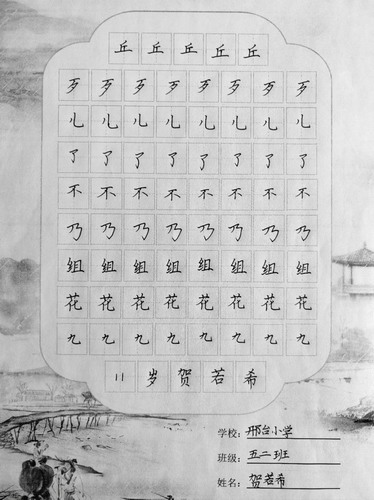 丘丘丘丘丘
歹歹歹歹歹歹歹歹
儿儿儿儿儿儿儿儿
了了了了了了了了
不不不不不不不不
乃乃乃乃乃乃乃乃
组组组组组组组组
花花花花花花花花
九九九九九九九九
11岁贺若希
学校：邢台小学
班级：五二班
姓名：贺若希